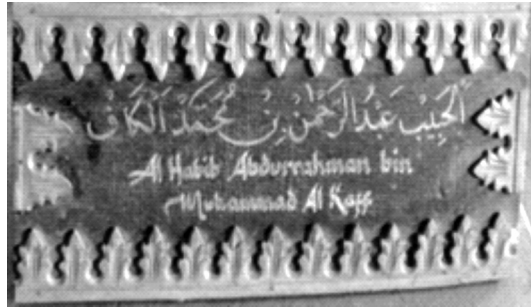 اَلْحَبِيْبُ عَبْدُ الرَّحْمٰنِ بِنْ مُحَمَّدْ اَلْكَافْ
Al Habib Abdurrahman bin
Muhammad Al Kaff